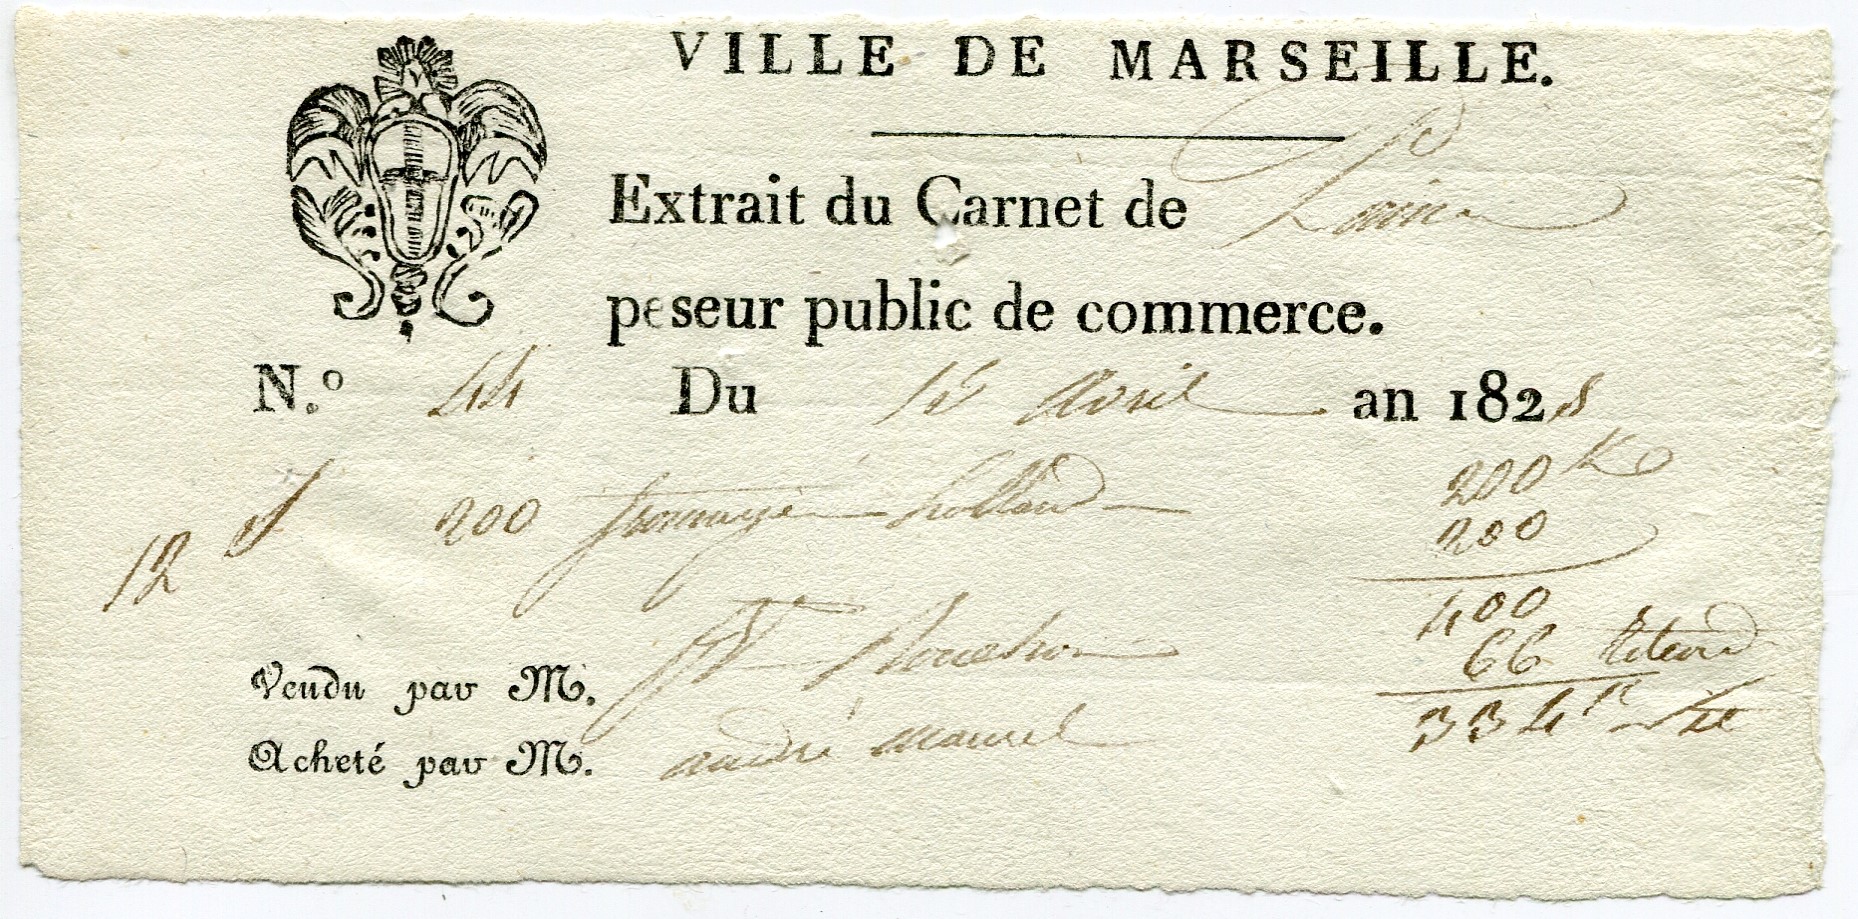 VILLE DE MARSEILLE.
Extrait du Carnet de
peseur public de commerce.
N.º 44 Du 15 Avril an 1828
200 Ko
12 200 fromages hollande 200
400
66
Vendu par M.
334
Acheté par M. andré maurel